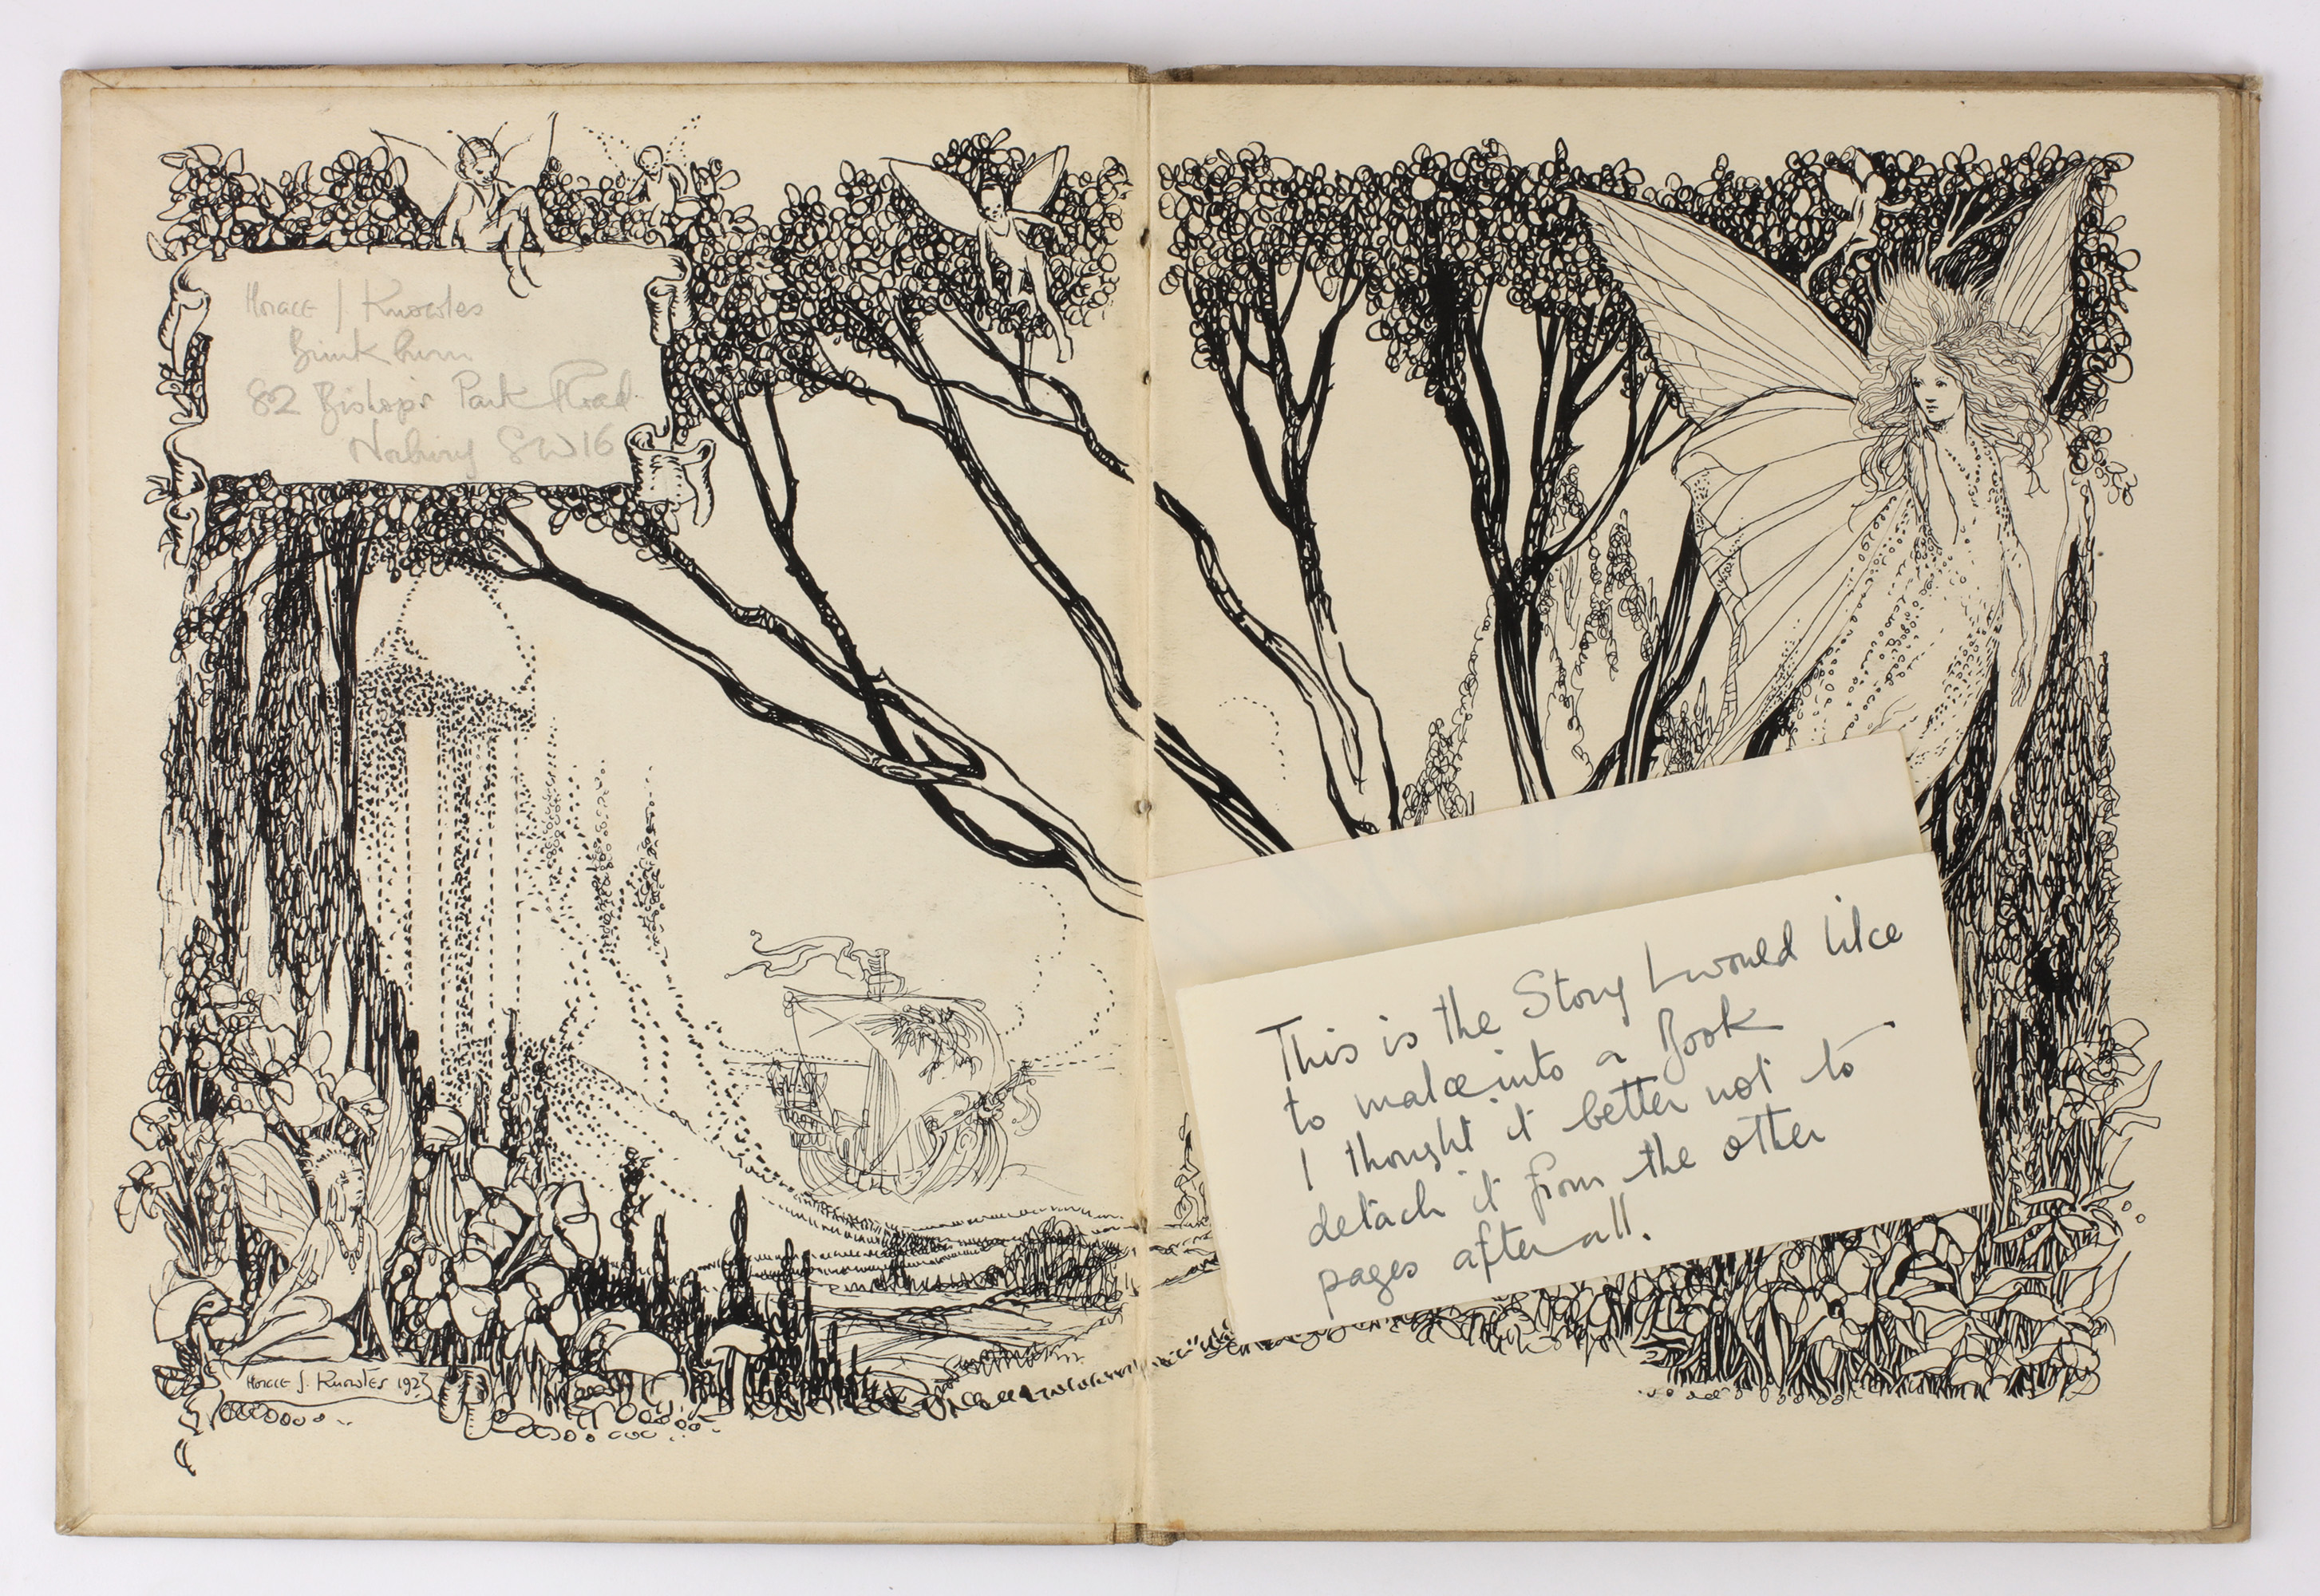 Horace J Knowles
Brinkburn
82 Bishop's Park Road
Norbury SW16
This is the Story I would like
to make into a Book
I thought it better not to
detach it from the other
pages after all.
HORACE J. KNOWLES 1923